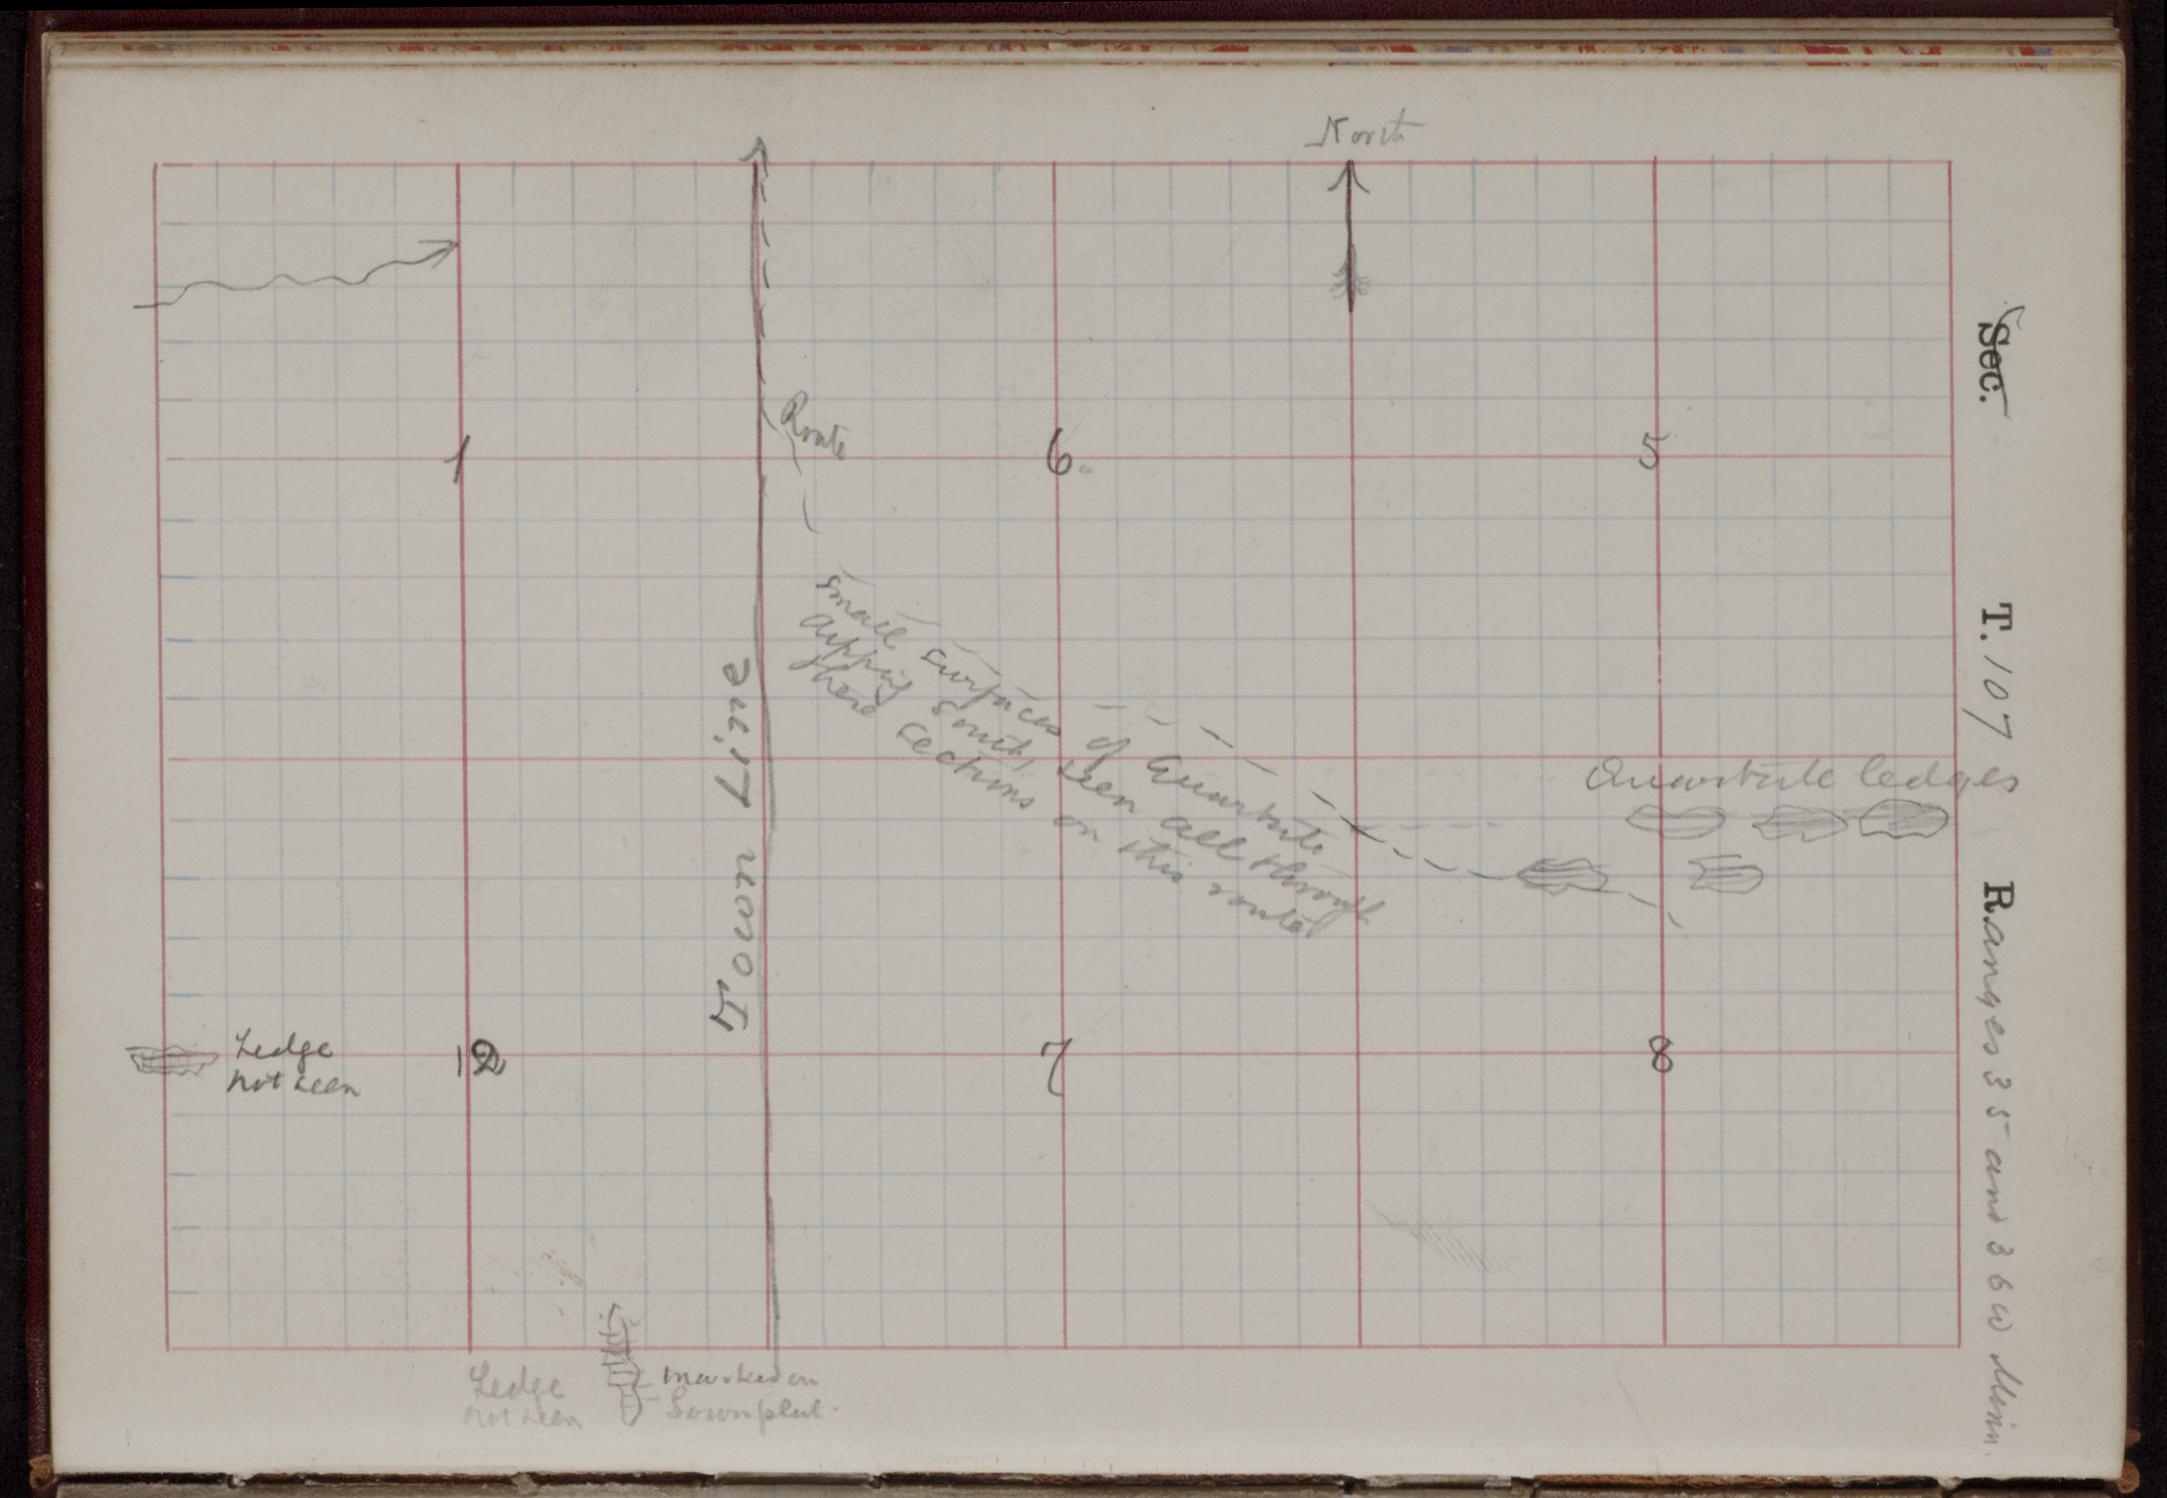 North
Sec. T. 107 Ranges 35 and 36 W Minn.
Route
1
6.
5
small surfaces of Quartzite
dipping south, seen all through
these sections on this route
Town Line
Quartzite ledges
Ledge
not seen
12
7
8
Ledge
not seen
marked on
Town plat.